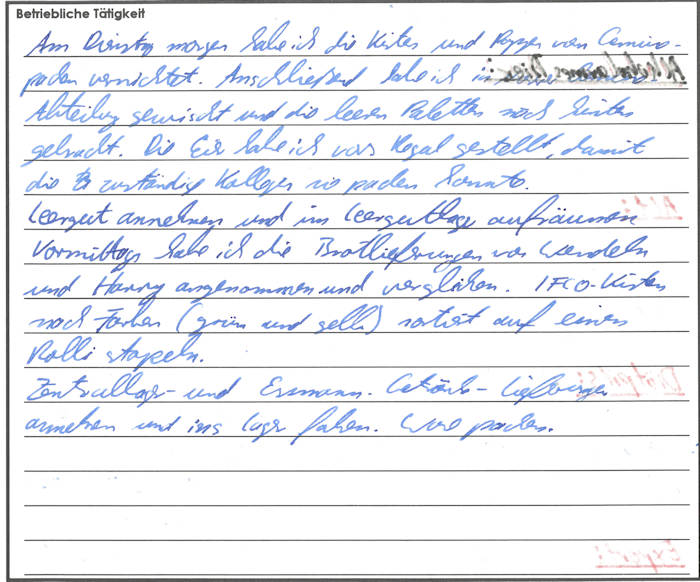 Betriebliche Tätigkeit
Am Dienstag morgen habe ich die Kisten und Pappen vom
packen vernichtet. Anschließend habe ich in
Abteilung gewischt und die leeren Paletten nach hinten
gebracht. Die Eier habe ich vors Regal gestellt, damit
die zuständige Kollegin sie packen konnte.
Leergut annehmen und im Leergutlager aufräumen
Vormittags habe ich die Brotlieferungen von Wendeln
und Harry angenommen und verglichen. IFCO-Kisten
nach Farben (grün und gelb) sortiert auf einen
Rolli stapeln.
Zentrallager- und Essmann. Getränke-Lieferungen
annehmen und ins Lager fahren. Ware packen.